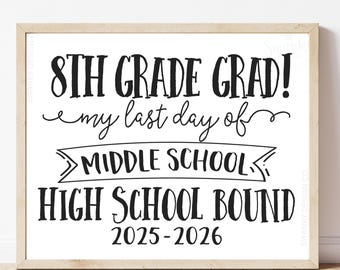 8TH GRADE GRAD!
my last day of
MIDDLE SCHOOL,
HIGH SCHOOL BOUND
2025-2026